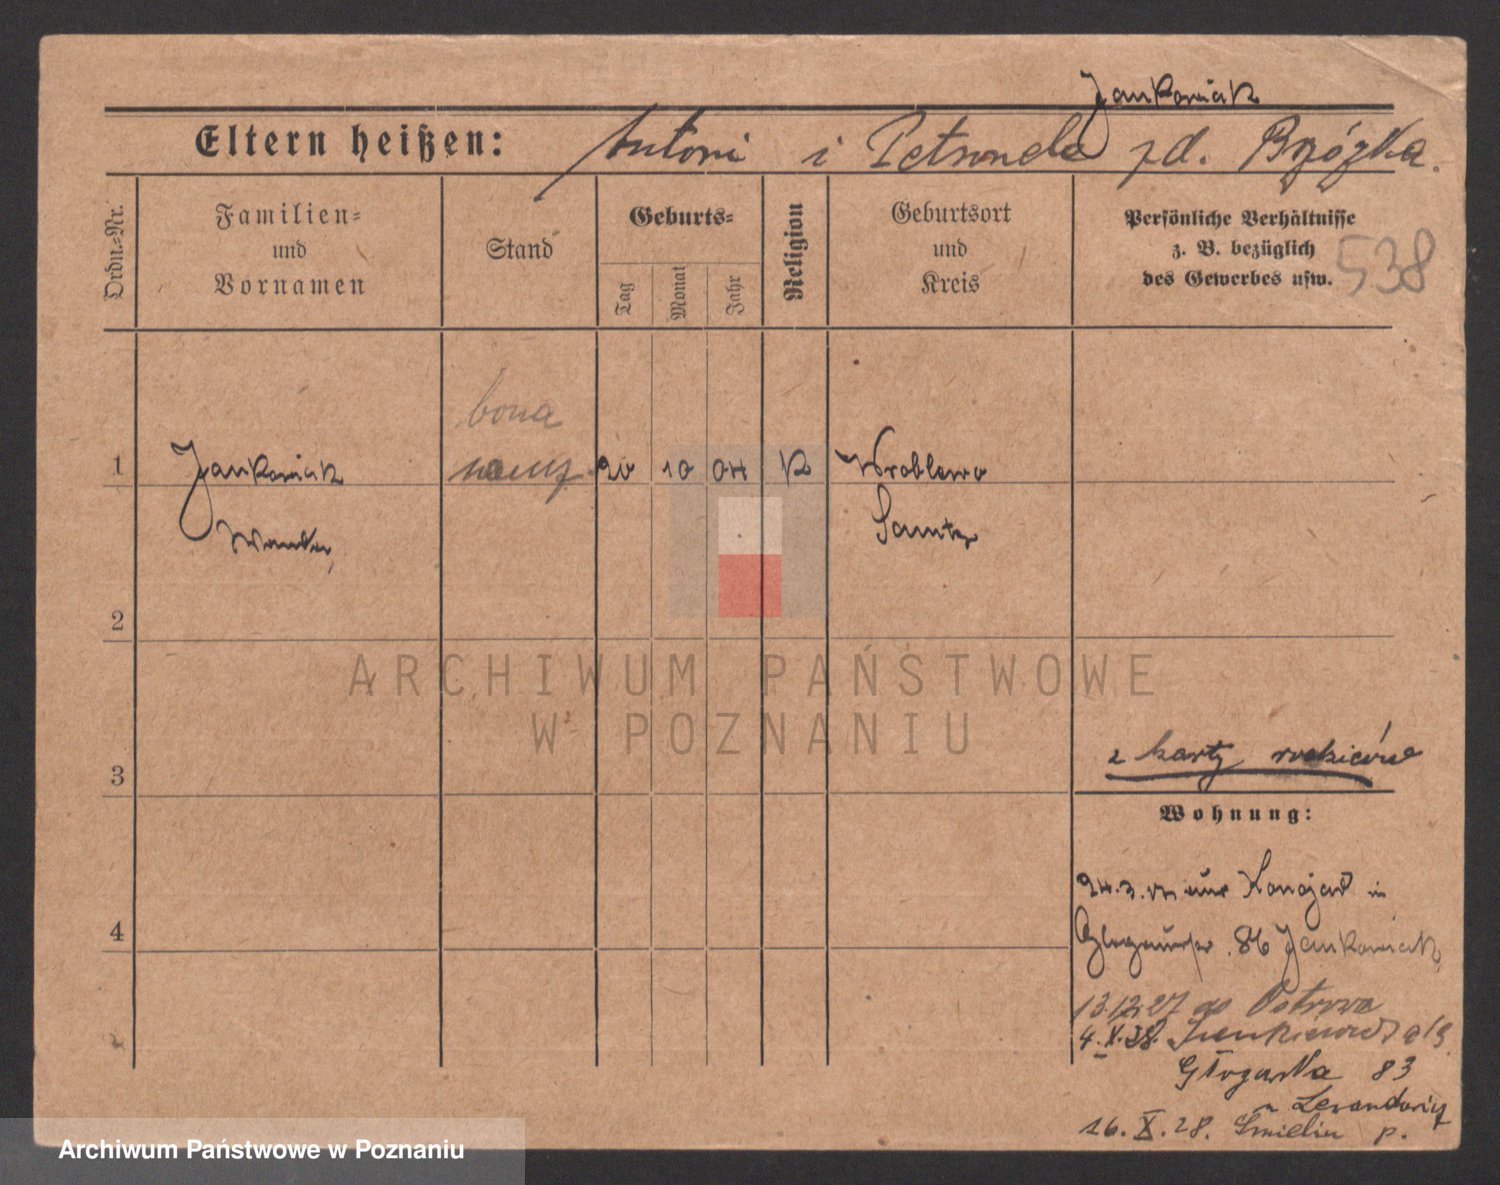 Jankowiak
Eltern heißen: Antoni i Petronela zd. Brzózka.
Ordn.-Nr.
Familien-
und
Vornamen
Stand
Geburts-
Tag
Monat
Jahr
Religion
Geburtsort
und
Kreis
Persönliche Verhältnisse
z. B. bezüglich
des Gewerbes usw.
538
bona
1 Jankowiak naucz 20 10 04 K Wroblewo
Wanda Samter
2
ARCHIWUM PAŃSTWOWE
W POZNANIU
3
z karty rodziców
Wohnung:
24.3. Konojad in
4
Glogauerstr. 86 Jankowiak
13.12.27 do Ostrowa
4.V.28.
Głogowska 83
16.X.28. p.
Archiwum Państwowe w Poznaniu